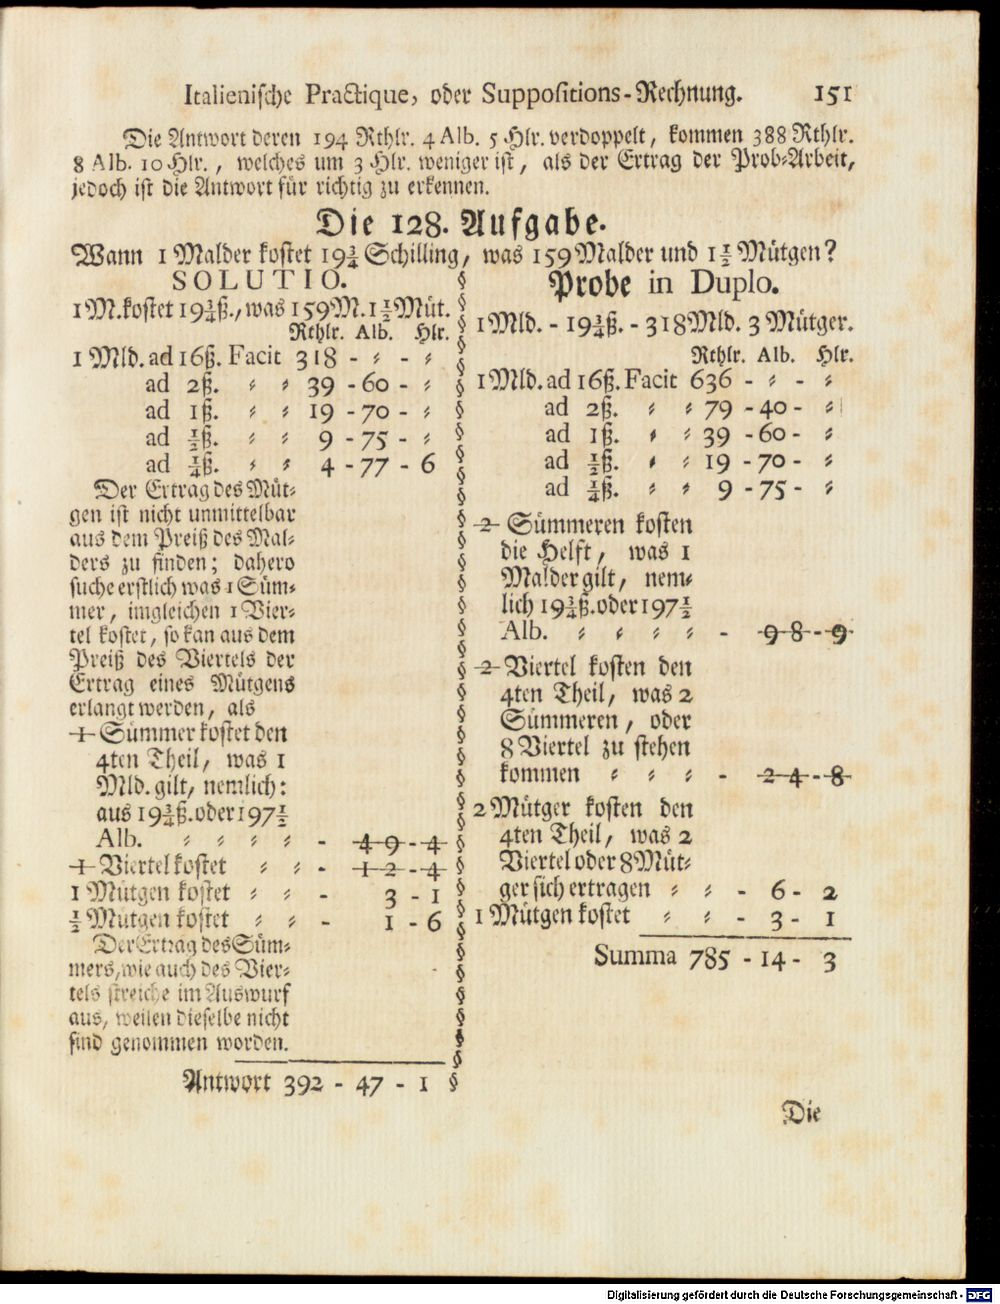 Italienische Practique, oder Suppositions-Rechnung. 151
Die Antwort deren 194 Rthlr. 4 Alb. 5 Hlr. verdoppelt, kommen 388 Rthlr.
8 Alb. 10 Hlr., welches um 3 Hlr. weniger ist, als der Ertrag der Prob-Arbeit,
jedoch ist die Antwort für richtig zu erkennen.
Die 128. Aufgabe.
Wann 1 Malder kostet 19¾ Schilling, was 159 Malder und 1½ Mütgen?
SOLUTIO.
1 M. kostet 19¾ß., was 159 M. 1½ Müt.
Rthlr. Alb. Hlr.
1 Mld. ad 16ß. Facit 318 - ⸗ - ⸗
ad 2ß. ⸗ ⸗ 39 - 60 - ⸗
ad 1ß. ⸗ ⸗ 19 - 70 - ⸗
ad ½ß. ⸗ ⸗ 9 - 75 - ⸗
ad ¼ß. ⸗ ⸗ 4 - 77 - 6
Der Ertrag des Müt⸗
gen ist nicht unmittelbar
aus dem Preiß des Mal⸗
ders zu finden; dahero
suche erstlich was 1 Süm⸗
mer, imgleichen 1 Vier⸗
tel kostet, so kan aus dem
Preiß des Viertels der
Ertrag eines Mütgens
erlangt werden, als
1 Sümmer kostet den
4ten Theil, was 1
Mld. gilt, nemlich:
aus 19¾ß. oder 197½
Alb. ⸗ ⸗ ⸗ ⸗ - 49 - 4
1 Viertel kostet ⸗ ⸗ - 12 - 4
1 Mütgen kostet ⸗ ⸗ - 3 - 1
½ Mütgen kostet ⸗ ⸗ - 1 - 6
Der Ertrag des Süm⸗
mers, wie auch des Vier⸗
tels streiche im Auswurf
aus, weilen dieselbe nicht
sind genommen worden.
Antwort 392 - 47 - 1
Probe in Duplo.
1 Mld. - 19¾ß. - 318 Mld. 3 Mütger.
Rthlr. Alb. Hlr.
1 Mld. ad 16ß. Facit 636 - ⸗ - ⸗
ad 2ß. ⸗ ⸗ 79 - 40 - ⸗
ad 1ß. ⸗ ⸗ 39 - 60 - ⸗
ad ½ß. ⸗ ⸗ 19 - 70 - ⸗
ad ¼ß. ⸗ ⸗ 9 - 75 - ⸗
2 Sümmeren kosten
die Helft, was 1
Malder gilt, nem⸗
lich 19¾ß. oder 197½
Alb. ⸗ ⸗ ⸗ ⸗ - 98 - 9
2 Viertel kosten den
4ten Theil, was 2
Sümmeren, oder
8 Viertel zu stehen
kommen ⸗ ⸗ ⸗ - 24 - 8
2 Mütger kosten den
4ten Theil, was 2
Viertel oder 8 Müt⸗
ger sich ertragen ⸗ ⸗ - 6 - 2
1 Mütgen kostet ⸗ ⸗ - 3 - 1
Summa 785 - 14 - 3
Die
Digitalisierung gefördert durch die Deutsche Forschungsgemeinschaft - DFG